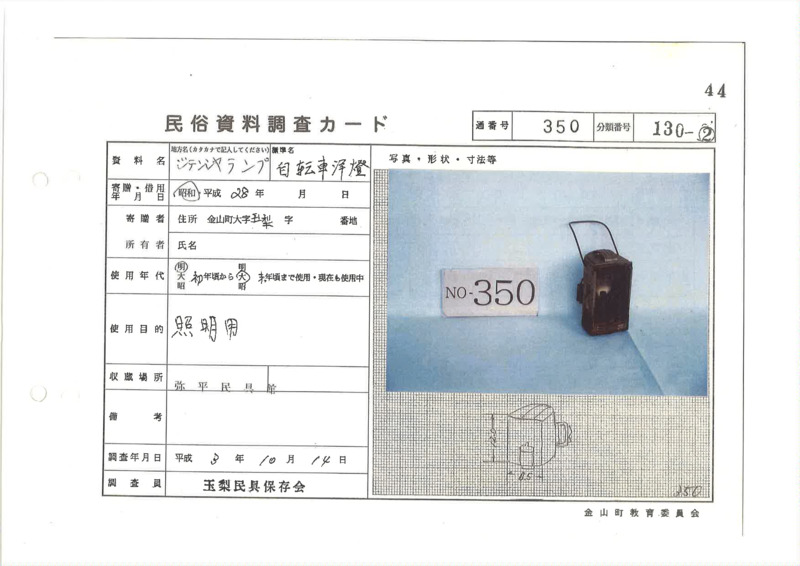 44
民俗資料調査カード
通番号 350 分類番号 130-②
資料名 地方名(カタカナで記入してください) ジテンシャランプ 標準名 自転車洋燈
写真・形状・寸法等
寄贈・借用年月日 昭和 平成 28年 月 日
寄贈者 住所 金山町大字玉梨 字 番地
所有者 氏名
使用年代 明 大 昭 初年頃から 明 大 昭 末年頃まで使用・現在も使用中
使用目的 照明用
収蔵場所 弥平民具館
備考
調査年月日 平成 3年 10月 14日
調査員 玉梨民具保存会
NO-350
8.5
350
金山町教育委員会